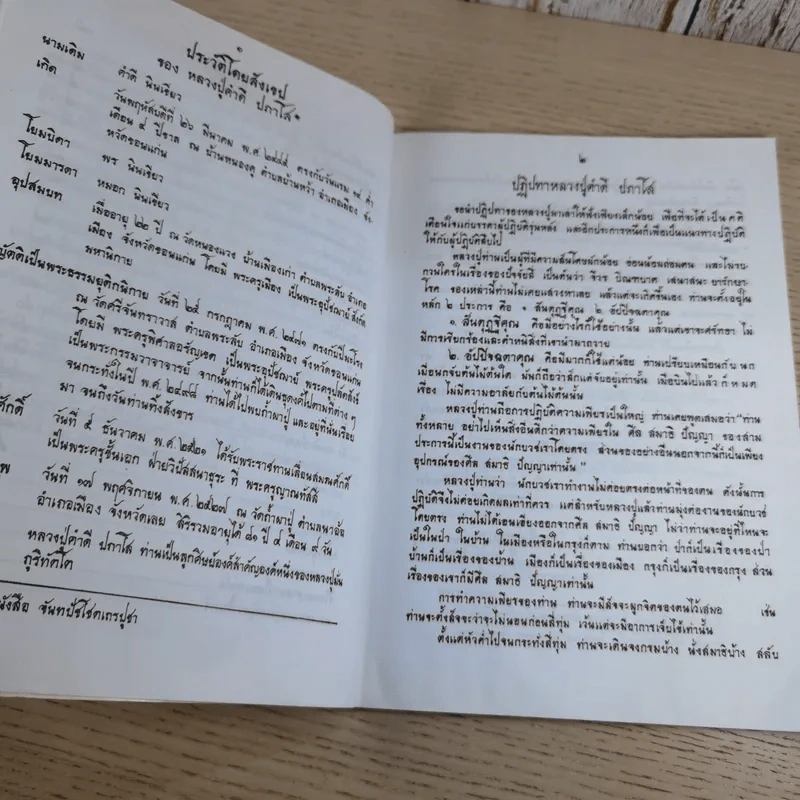 ๑
ประวัติโดยสังเขป
ของ หลวงปู่คำดี ปภาโส*
นามเดิม คำดี นินเขียว
เกิด วันพฤหัสบดีที่ ๒๖ มีนาคม พ.ศ. ๒๔๔๕ ตรงกับวันแรม ๑๔ ค่ำ
เดือน ๔ ปีขาล ณ บ้านหนองคู ตำบลบ้านหว้า อำเภอเมือง จัง-
หวัดขอนแก่น
โยมบิดา พร นินเขียว
โยมมารดา หมอก นินเขียว
อุปสมบท เมื่ออายุ ๒๒ ปี ณ วัดหนองแวง บ้านเมืองเก่า ตำบลพระลับ อำเภอ
เมือง จังหวัดขอนแก่น โดยมี พระครูเมือง เป็นพระอุปัชฌาย์ สังกัด
มหานิกาย
ญัตติเป็นพระธรรมยุติกนิกาย วันที่ ๒๕ กรกฎาคม พ.ศ. ๒๔๗๑ ตรงกับปีมะโรง
ณ วัดศรีจันทราวาส ตำบลพระลับ อำเภอเมือง จังหวัดขอนแก่น
โดยมี พระครูพิศาลอรัญเขต เป็นพระอุปัชฌาย์ พระครูปลัดสิงห์
เป็นพระกรรมวาจาจารย์ จากนั้นท่านก็ได้เดินธุดงค์ไปตามที่ต่าง ๆ
จนกระทั่งในปี พ.ศ. ๒๔๙๘ ท่านได้ไปพบถ้ำผาปู่ และอยู่ที่นั่นเรื่อย
มา จนถึงวันท่านทิ้งสังขาร
ศักดิ์ วันที่ ๕ ธันวาคม พ.ศ. ๒๕๒๑ ได้รับพระราชทานเลื่อนสมณศักดิ์
เป็นพระครูชั้นเอก ฝ่ายวิปัสสนาธุระ ที่ พระครูญาณทัสสี
พ วันที่ ๑๗ พฤศจิกายน พ.ศ. ๒๕๒๗ ณ วัดถ้ำผาปู่ ตำบลนาอ้อ
อำเภอเมือง จังหวัดเลย สิริรวมอายุได้ ๘๑ ปี ๘ เดือน ๙ วัน
หลวงปู่คำดี ปภาโส ท่านเป็นลูกศิษย์องค์สำคัญองค์หนึ่งของหลวงปู่มั่น
ภูริทัตโต
นังสือ จันทปัชโชตเถรปูชา
๒
ปฏิปทาหลวงปู่คำดี ปภาโส
ขอนำปฏิปทาของหลวงปู่มาเล่าให้ฟังเพียงเล็กน้อย เพื่อที่จะได้เป็นคติ
เตือนใจแก่บรรดาผู้ปฏิบัติรุ่นหลัง และอีกประการหนึ่งก็เพื่อเป็นแนวทางปฏิบัติ
ให้กับผู้ปฏิบัติสืบไป
หลวงปู่ท่านเป็นผู้ที่มีความสันโดษมักน้อย อ่อนน้อมถ่อมตน และไม่รบ-
กวนใครในเรื่องของปัจจัยสี่ เป็นต้นว่า จีวร บิณฑบาต เสนาสนะ ยารักษา-
โรค ของเหล่านี้ท่านไม่เคยแสวงหาเลย แล้วแต่จะเกิดขึ้นเอง ท่านจะตั้งอยู่ใน
หลัก ๒ ประการ คือ ๑ สันตุฏฐีคุณ ๒ อัปปิจฉตาคุณ
๑. สันตุฏฐีคุณ คือมีอย่างไรก็ใช้อย่างนั้น แล้วแต่เขาจะศรัทธา ไม่
มีการเรียกร้องและตำหนิสิ่งที่เขานำมาถวาย
๒. อัปปิจฉตาคุณ คือมีมากก็ใช้แต่น้อย ท่านเปรียบเหมือนกับนก
เมื่อนกจับต้นไม้ต้นใด มันก็ถือว่าสักแต่จับอยู่เท่านั้น เมื่อบินไปแล้วก็หมด
เรื่อง ไม่มีความอาลัยกับต้นไม้ต้นนั้น
หลวงปู่ท่านถือการปฏิบัติความเพียรเป็นใหญ่ ท่านเคยพูดเสมอว่า "ท่าน
ทั้งหลาย อย่าไปเห็นสิ่งอื่นดีกว่าความเพียรใน ศีล สมาธิ ปัญญา ของสาม
ประการนี้เป็นงานของนักบวชเราโดยตรง ส่วนของอย่างอื่นนอกจากนี้ก็เป็นเพียง
อุปกรณ์ของศีล สมาธิ ปัญญาเท่านั้น"
หลวงปู่ท่านว่า นักบวชเราทำงานไม่ค่อยตรงต่อหน้าที่ของตน ดังนั้นการ
ปฏิบัติจึงไม่ค่อยเกิดผลเท่าที่ควร แต่สำหรับหลวงปู่แล้วท่านมุ่งต่องานของนักบวช
โดยตรง ท่านไม่ได้เอนเอียงออกจากศีล สมาธิ ปัญญา ไม่ว่าท่านจะอยู่ที่ไหนจะ
เป็นในป่า ในบ้าน ในเมืองหรือในกรุงก็ตาม ท่านบอกว่า ป่าก็เป็นเรื่องของป่า
บ้านก็เป็นเรื่องของบ้าน เมืองก็เป็นเรื่องของเมือง กรุงก็เป็นเรื่องของกรุง ส่วน
เรื่องของเราก็มีศีล สมาธิ ปัญญาเท่านั้น
การทำความเพียรของท่าน ท่านจะมีสัจจะผูกจิตของตนไว้เสมอ เช่น
ท่านจะตั้งสัจจะว่าจะไม่นอนก่อนสี่ทุ่ม เว้นแต่จะมีอาการเจ็บไข้เท่านั้น
ตั้งแต่หัวค่ำไปจนกระทั่งสี่ทุ่ม ท่านจะเดินจงกรมบ้าง นั่งสมาธิบ้าง สลับ